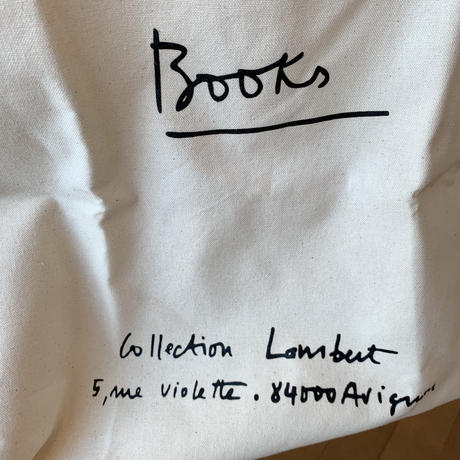 Books
Collection Lambert
5, rue violette. 84000 Avignon